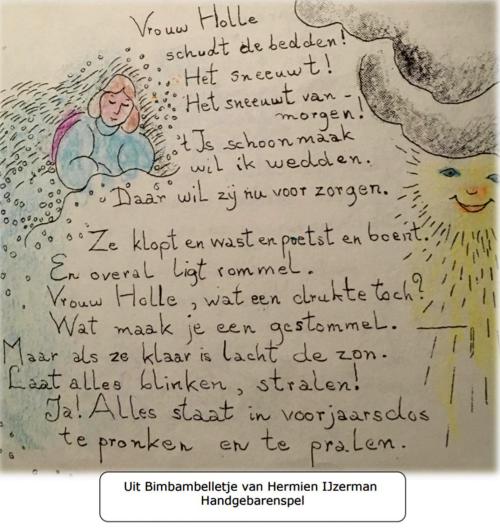 Vrouw Holle
schudt de bedden!
Het sneeuwt!
Het sneeuwt van-
morgen!
't Is schoonmaak
wil ik wedden.
Daar wil zij nu voor zorgen.
Ze klopt en wast en poetst en boent.
En overal ligt rommel.
Vrouw Holle, wat een drukte toch?
Wat maak je een gestommel.
Maar als ze klaar is lacht de zon.
Laat alles blinken, stralen!
Ja! Alles staat in voorjaarsdos
te pronken en te pralen.
Uit Bimbambelletje van Hermien IJzerman
Handgebarenspel